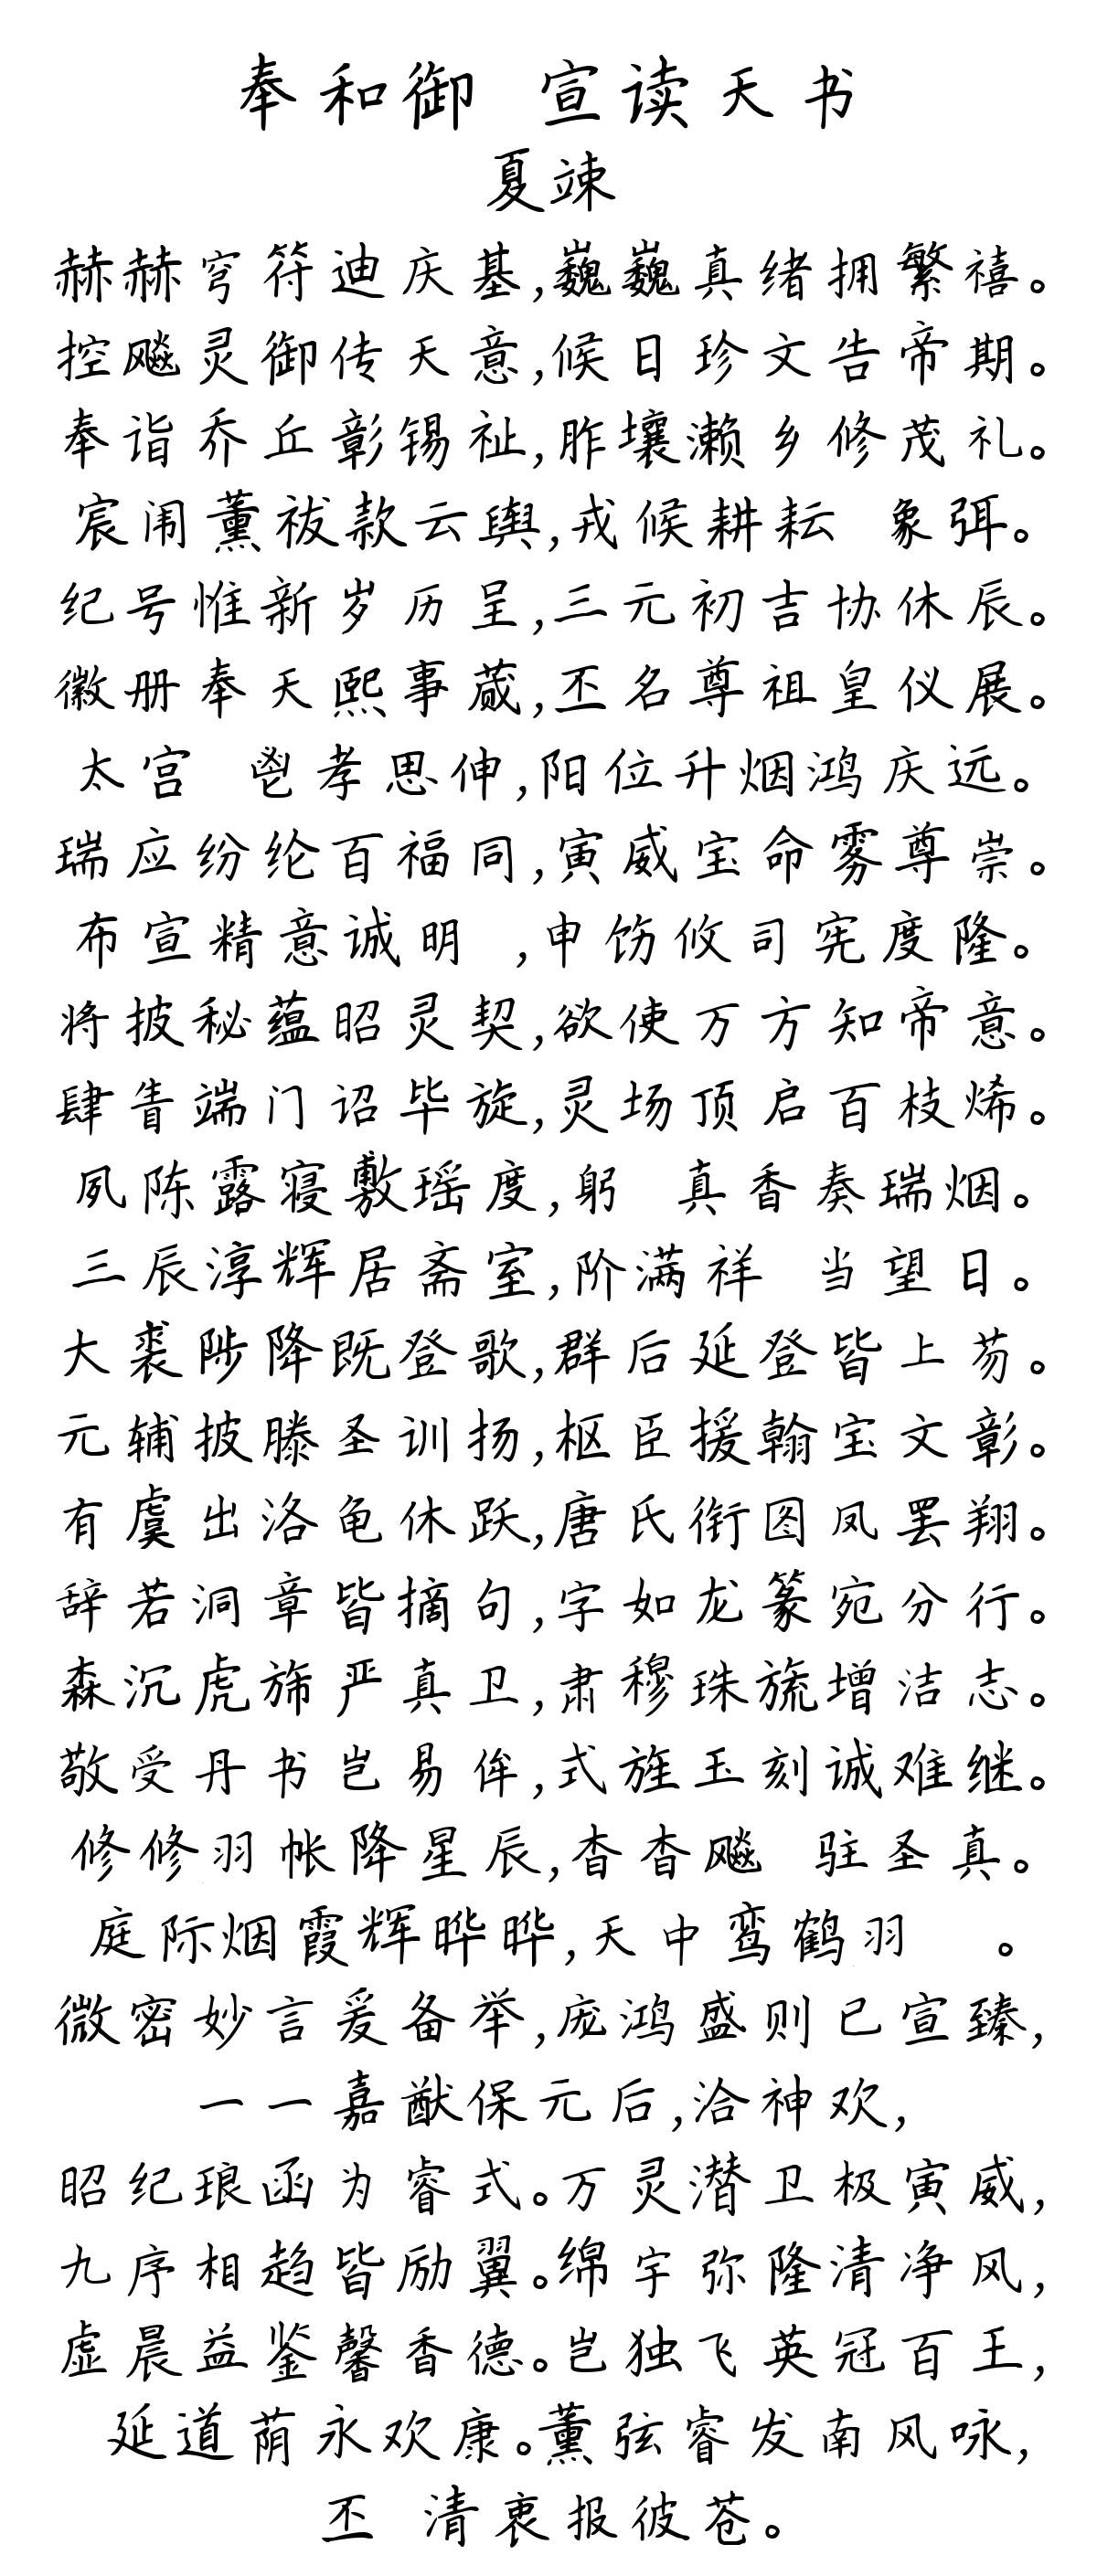 奉和御 宣读天书
夏竦
赫赫穹符迪庆基,巍巍真绪拥繁禧。
控飚灵御传天意,候日珍文告帝期。
奉诣乔丘彰锡祉,胙壤濑乡修茂礼。
宸闱薰祓款云舆,戎候耕耘 象弭。
纪号惟新岁历呈,三元初吉协休辰。
徽册奉天熙事蒇,丕名尊祖皇仪展。
太宫 鬯孝思伸,阳位升烟鸿庆远。
瑞应纷纶百福同,寅威宝命雾尊崇。
布宣精意诚明 ,申饬攸司宪度隆。
将披秘蕴昭灵契,欲使万方知帝意。
肆眚端门诏毕旋,灵场顶启百枝烯。
夙陈露寝敷瑶度,躬 真香奏瑞烟。
三辰淳辉居斋室,阶满祥 当望日。
大裘陟降既登歌,群后延登皆上芴。
元辅披滕圣训扬,枢臣援翰宝文彰。
有虞出洛龟休跃,唐氏衔图凤罢翔。
辞若洞章皆摘句,字如龙篆宛分行。
森沉虎旆严真卫,肃穆珠旒增洁志。
敬受丹书岂易侔,式旌玉刻诚难继。
修修羽帐降星辰,杳杳飚 驻圣真。
庭际烟霞辉晔晔,天中鸾鹤羽 。
微密妙言爰备举,庞鸿盛则已宣臻,
一一嘉猷保元后,洽神欢,
昭纪琅函为睿式。万灵潜卫极寅威,
九序相趋皆励翼。绵宇弥隆清净风,
虚晨益鉴馨香德。岂独飞英冠百王,
延道荫永欢康。薰弦睿发南风咏,
丕 清衷报彼苍。